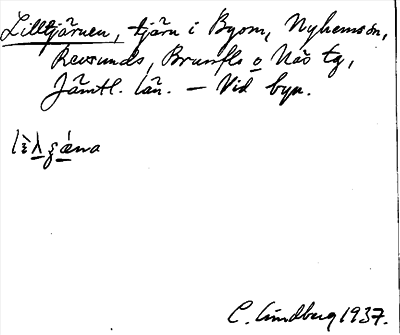 Lilltjärnen, tjärn i Byom, Nyhemssn,
Revsunds, Brunflo o Näs tg,
Jämtl. län. — Vid byn.
C. Lindberg 1937.